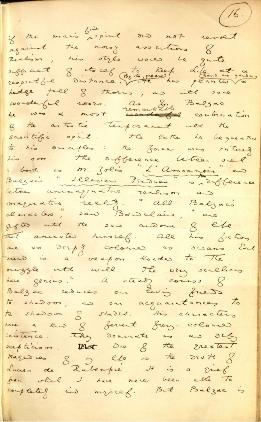 16.
if the man's fine spirit did not revolt
against the noisy assertions of
realism, his style would be quite
sufficient of itself to keep life at a
respectful distance. By its means he has planted round his garden a
hedge full of thorns, and red with
wonderful roses. As for Balzac
he was a most remarkable combination
of the artistic temperament with the
scientific spirit. The latter he bequeathed
to his disciples: the former was entirely
his own. The difference between such
a book as M. Zola's L'Assommoir and
Balzac's Illusions Perdues is the difference
between unimaginative realism and
imaginative reality. All Balzac's
characters said Baudelaire, are
gifted with the same ardour of life
that animated himself. All his fictions
are as deeply coloured as dreams. Each
mind is a weapon loaded to the
muzzle with will. The very scullions
have genius. A steady course of
Balzac reduces our living friends
to shadows, and our acquaintances to
the shadows of shades. His characters
have a kind of fervent fiery coloured
existence. They dominate us and defy
scepticism. One of the greatest
tragedies of my life is the death of
Lucien de Rubempré. It is a grief
from which I have never been able to
completely rid myself. But Balzac is